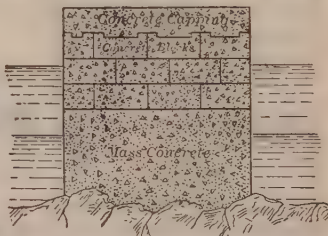 Concrete Capping
Concrete Blocks
Mass Concrete